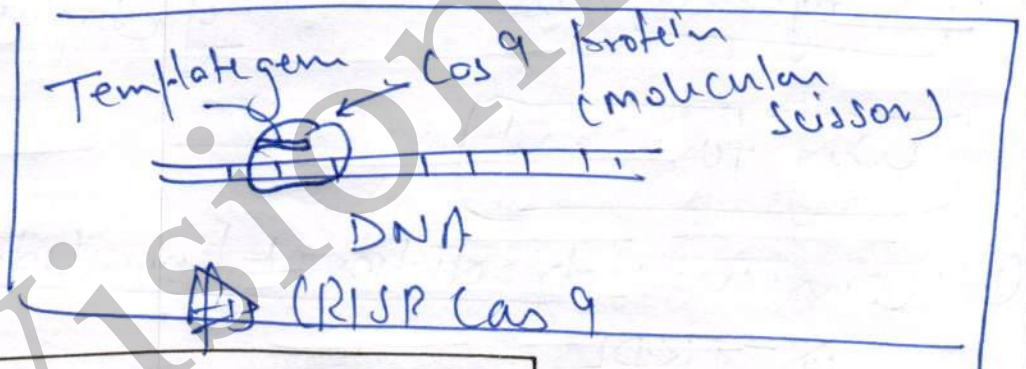 Template gene Cas 9 protein
(molecular
scissor)
DNA
CRISPR Cas 9
Vision